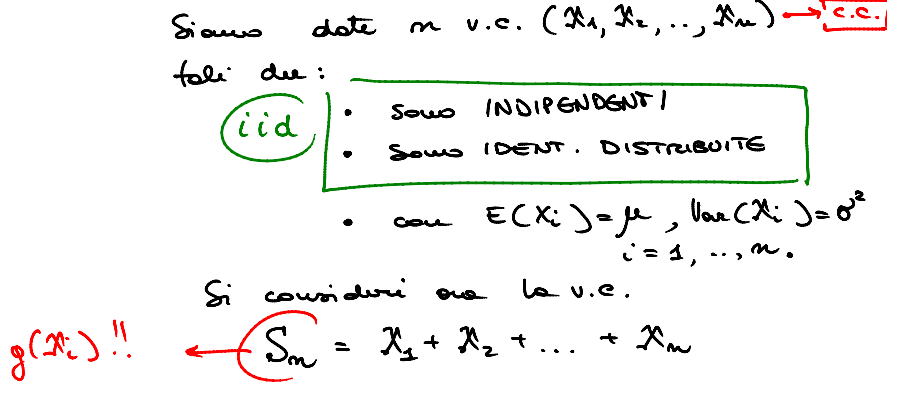 Siano date n v.c. (X₁, X₂, .., Xₙ) → c.c.
tali che:
iid
• sono INDIPENDENTI
• sono IDENT. DISTRIBUITE
• con E(Xᵢ) = μ, Var(Xᵢ) = σ²
i = 1, .., n.
Si consideri ora la v.c.
g(Xᵢ)!! ← Sₙ = X₁ + X₂ + ... + Xₙ